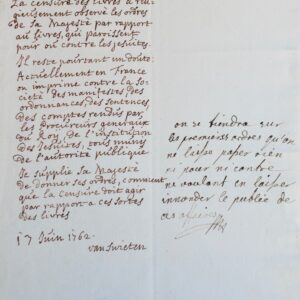 La censure des livres a reli-
gieusement observé les ordres
de Sa Majesté par rapport
aû livres, qui parrissent
pour ou contre les jesuites.
Il reste pourtant un doute:
Actuellement en France
on imprime contre la So-
cieté des manifestes des
ordonnances, des sentences,
des comptes rendus par
les procureurs generaux
du Roy, de l'institution
des Jesuites, tous munis
de l'autorité publique
Je supplie Sa Majesté
de donner ses ordres, comment
que la censure doit agir
par rapport a ces sortes
des livres
17 Juin 1762.
van Swieten
on se tiendra sur
les premiers ordres qu'on
ne laisse passer rien
ni pour ni contre
ne voulant en laisser
innonder le publée de
ces